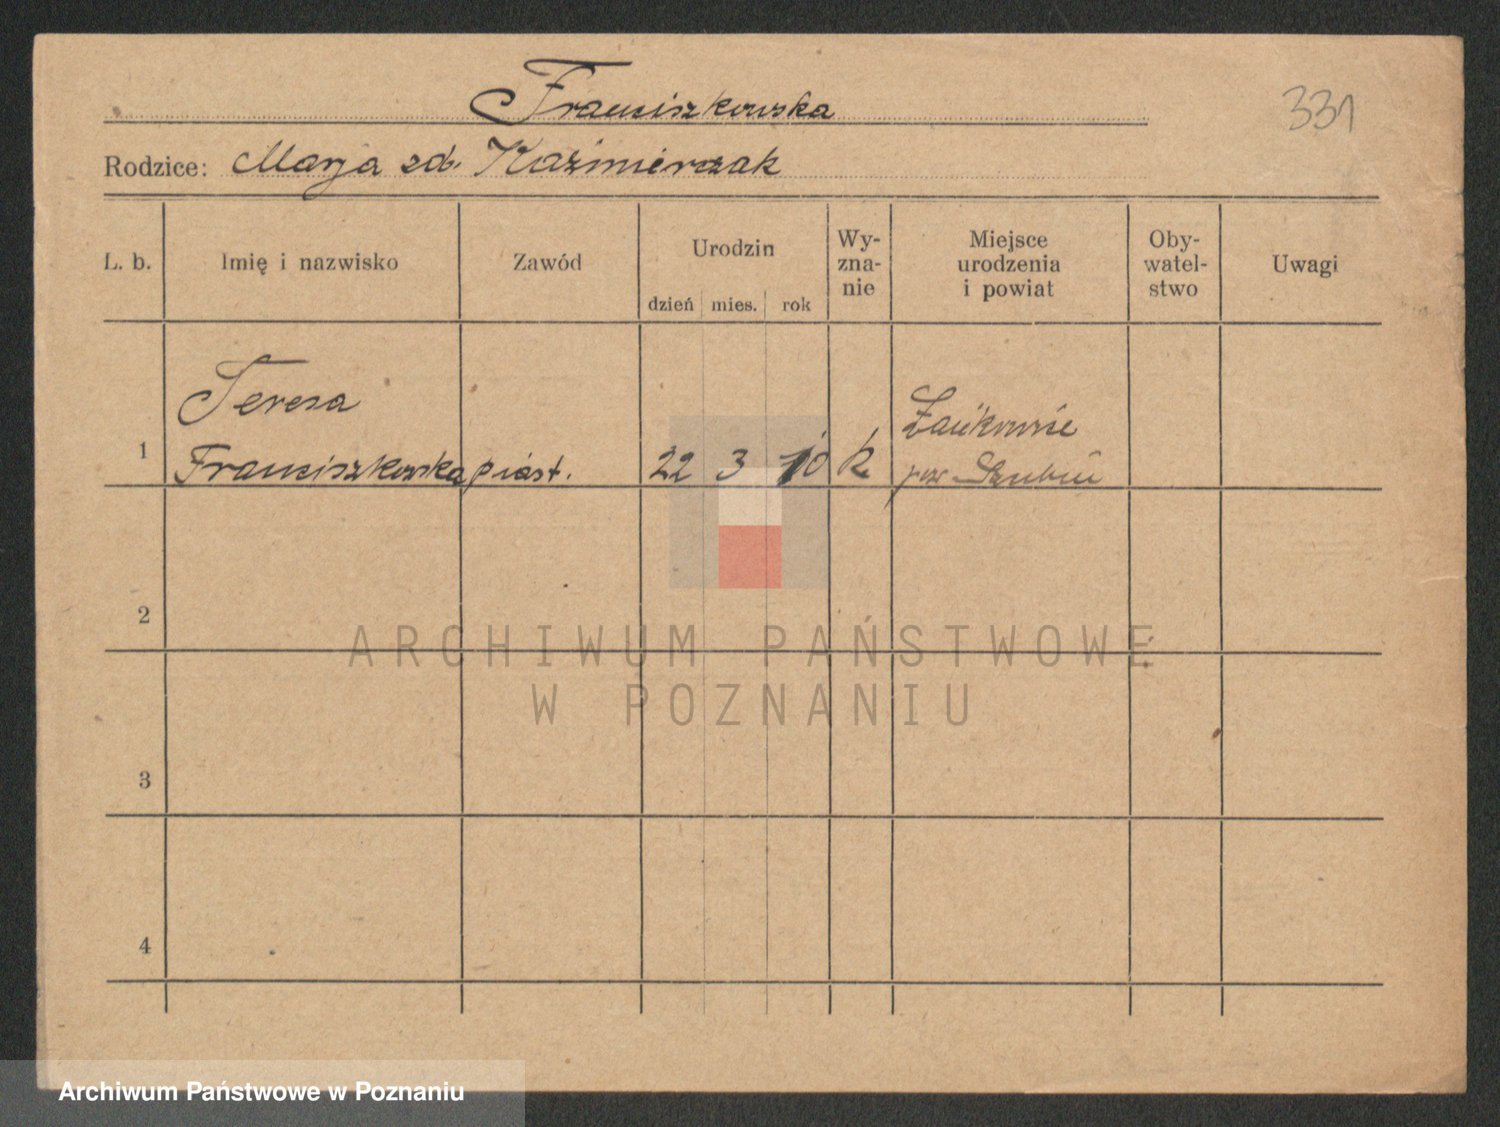 Franciszkowska
331
Rodzice: Marja zd. Kaźmierczak
L. b. Imię i nazwisko Zawód Urodzin dzień mies. rok Wy-zna-nie Miejsce urodzenia i powiat Oby-watel-stwo Uwagi
Teresa
1 Franciszkowska piast. 22 3 10 k
pow Szubin
2
3
4
ARCHIWUM PAŃSTWOWE
W POZNANIU
Archiwum Państwowe w Poznaniu